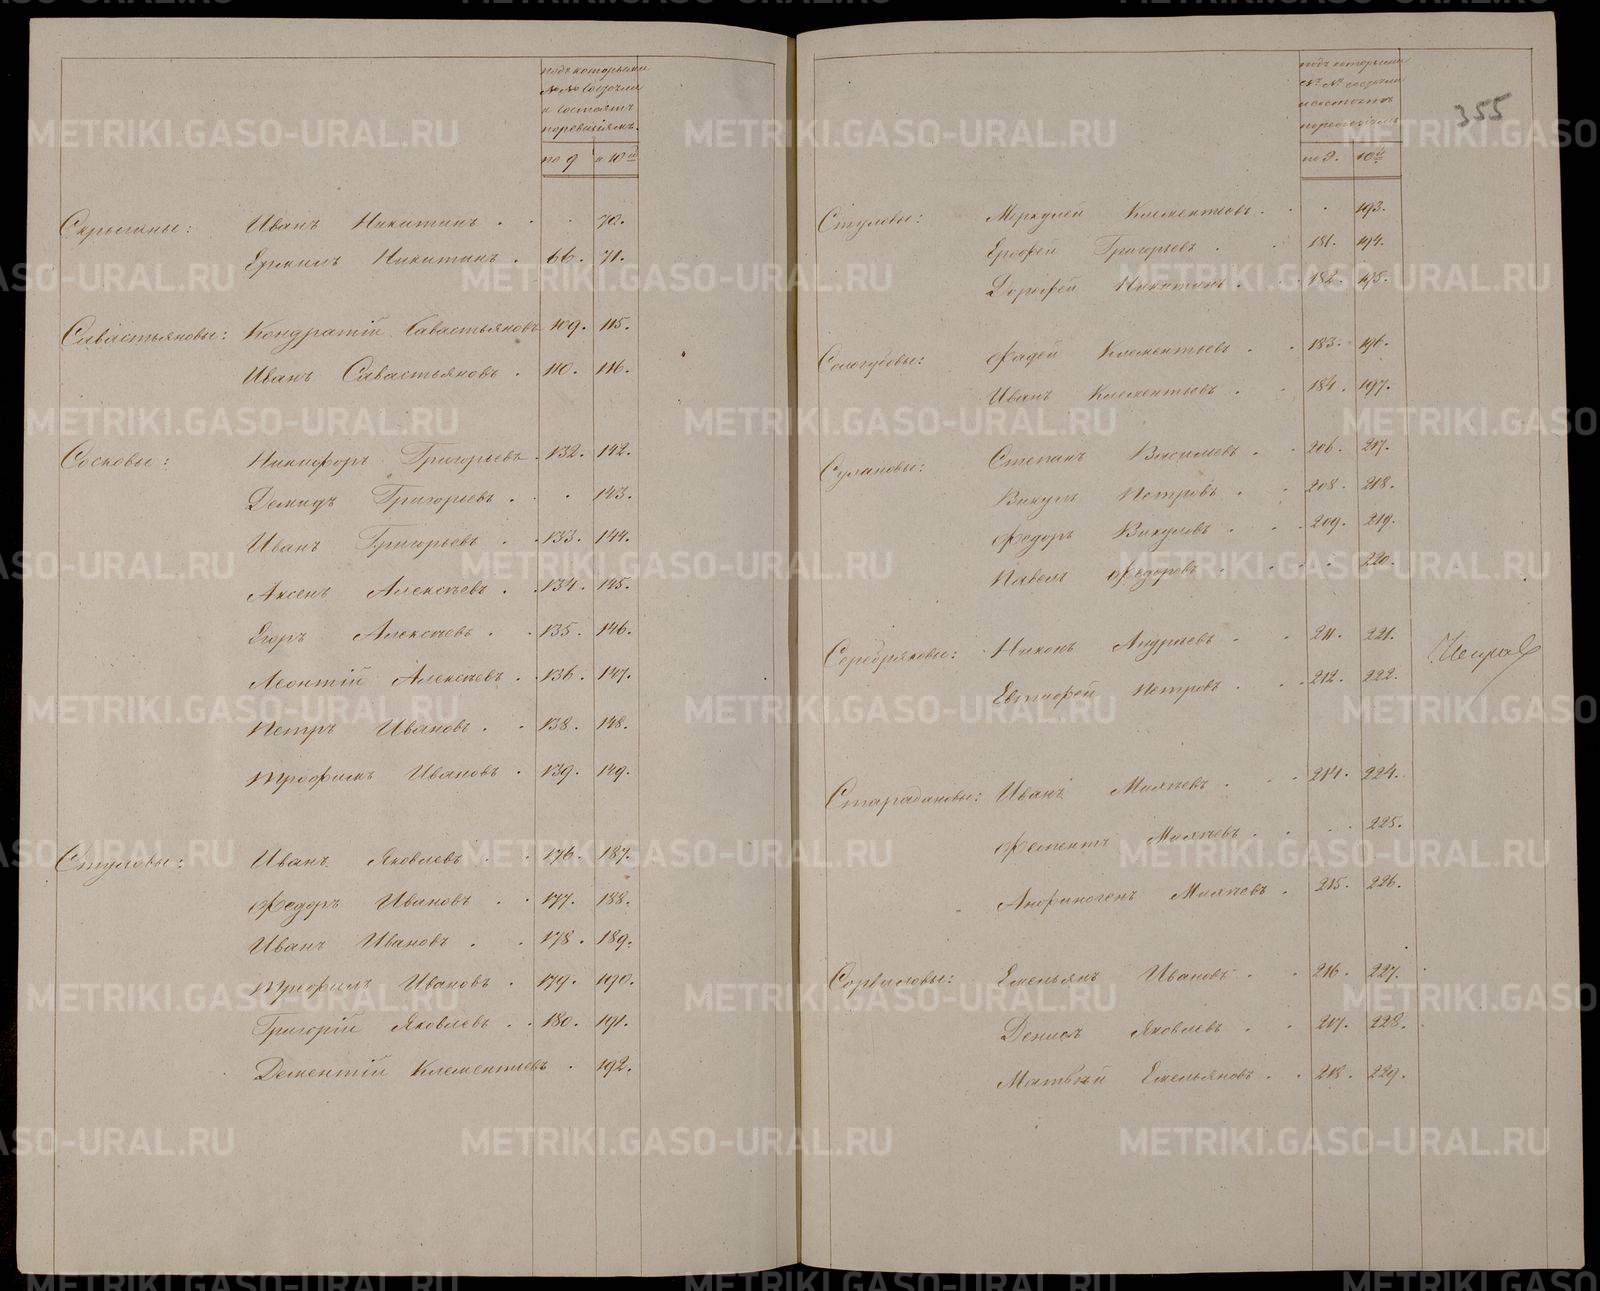 подъ которыми
№№ состояли
и состоятъ
поревизіямъ.
по 9 и 10й
Скрыгины: Иванъ Никитинъ . . . 70.
Ермилъ Никитинъ . 66. 71.
Савастьяновы: Кондратій Савастьяновъ 109. 115.
Иванъ Савастьяновъ . 110. 116.
Сосковы: Никифоръ Григорьевъ . 132. 142.
Демидъ Григорьевъ . . 143.
Иванъ Григорьевъ . . 133. 144.
Аксенъ Алексѣевъ . . 134. 145.
Егоръ Алексѣевъ . . 135. 146.
Леонтій Алексѣевъ . . 136. 147.
Петръ Ивановъ . . 138. 148.
Трофимъ Ивановъ . 139. 149.
Стуловы: Иванъ Яковлевъ . . 176. 187.
Федоръ Ивановъ . . 177. 188.
Иванъ Ивановъ . . 178. 189.
Трофимъ Ивановъ . 179. 190.
Григорій Яковлевъ . . 180. 191.
Дементій Клементьевъ . 192.
355
подъ которыми
№ № состояли
и состоятъ
поревизіямъ
по 9. 10й
Стуловы: Меркулей Клементьевъ . . . 193.
Ерофей Григорьевъ . . 181. 194.
Дорофей Никитинъ . . 182. 195.
Сологубовы: Фадей Клементьевъ . . 183. 196.
Иванъ Клементьевъ . . 184. 197.
Сулановы: Степанъ Васильевъ . . 206. 217.
Викулъ Петровъ . . 208. 218.
Федоръ Викуловъ . . . 209. 219.
Павелъ Федоровъ . . . . 220.
Серебряковы: Никонъ Андреевъ . . 211. 221.
Евтифей Петровъ . . . 212. 222.
Старадановы: Иванъ Малѣевъ . . . 214. 224.
Малѣевъ . . . . 225.
Анфиногенъ Малѣевъ . 215. 226.
Сорвиловы: Емельянъ Ивановъ . . 216. 227.
Денисъ Яковлевъ . . 217. 228.
Матвѣй Емельяновъ . . 218. 229.
METRIKI.GASO-URAL.RU